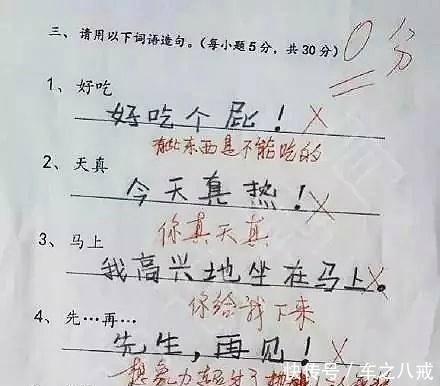 三、请用以下词语造句。(每小题5分，共30分)
0分
1、好吃
好吃个屁！
有些东西是不能吃的
2、天真
今天真热！
你真天真
3、马上
我高兴地坐在马上。
你给我下来
4、先…再…
先生，再见！
想象力
快传号／车之八戒